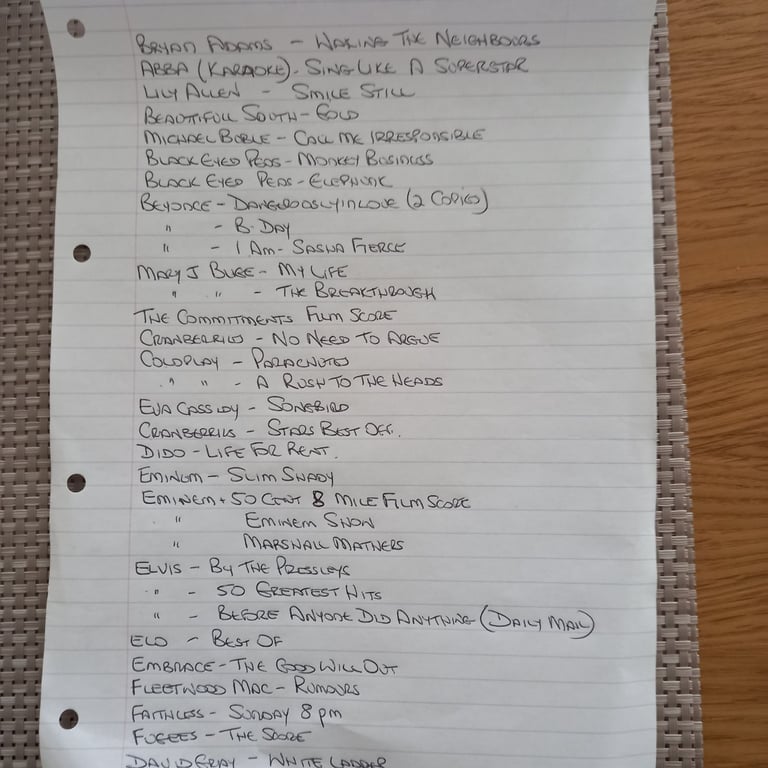 BRYAN ADAMS - WAKING THE NEIGHBOURS
ABBA (KARAOKE). SING LIKE A SUPERSTAR
LILY ALLEN - SMILE STILL
BEAUTIFUL SOUTH - GOLD
MICHAEL BUBLE - CALL ME IRRESPONSIBLE
BLACK EYED PEAS - MONKEY BUSINESS
BLACK EYED PEAS - ELEPHUNK
BEYONCE - DANGEROUSLY IN LOVE (2 COPIES)
" - B. DAY
" - I AM - SASHA FIERCE
MARY J BLIGE - MY LIFE
" " - THE BREAKTHROUGH
THE COMMITMENTS FILM SCORE
CRANBERRIES - NO NEED TO ARGUE
COLDPLAY - PARACHUTES
" " - A RUSH TO THE HEADS
EVA CASSIDY - SONGBIRD
CRANBERRIES - STARS BEST OFF.
DIDO - LIFE FOR RENT.
EMINEM - SLIM SHADY
EMINEM + 50 CENT 8 MILE FILM SCORE
" EMINEM SHOW
" MARSHALL MATHERS
ELVIS - BY THE PRESLEYS
" - 50 GREATEST HITS
" - BEFORE ANYONE DID ANYTHING (DAILY MAIL)
ELO - BEST OF
EMBRACE - THE GOOD WILL OUT
FLEETWOOD MAC - RUMOURS
FAITHLESS - SUNDAY 8 pm
FUGEES - THE SCORE
DAVID GRAY - WHITE LADDER